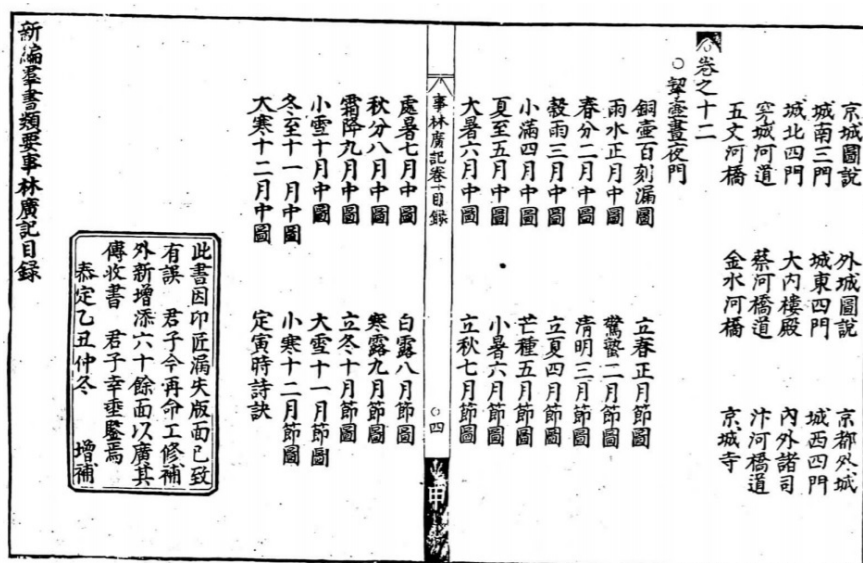 京城圖說 外城圖說 京都外城
城南三門 城東四門 城西四門
城北四門 大內樓殿 內外諸司
穿城河道 蔡河橋道 汴河橋道
五丈河橋 金水河橋 京城寺
卷之十二
○挈壺晝夜門
銅壺百刻漏圖 立春正月節圖
雨水正月中圖 驚蟄二月節圖
春分二月中圖 清明三月節圖
穀雨三月中圖 立夏四月節圖
小滿四月中圖 芒種五月節圖
夏至五月中圖 小暑六月節圖
大暑六月中圖 立秋七月節圖
事林廣記卷十目録 ○四
處暑七月中圖 白露八月節圖
秋分八月中圖 寒露九月節圖
霜降九月中圖 立冬十月節圖
小雪十月中圖 大雪十一月節圖
冬至十一月中圖 小寒十二月節圖
大寒十二月中圖 定寅時詩訣
此書因印匠漏失版面已致
有誤 君子今再命工修補
外新增添六十餘面以廣其
傳收書 君子幸垂鑒焉
泰定乙丑仲冬 增補
新編羣書類要事林廣記目録